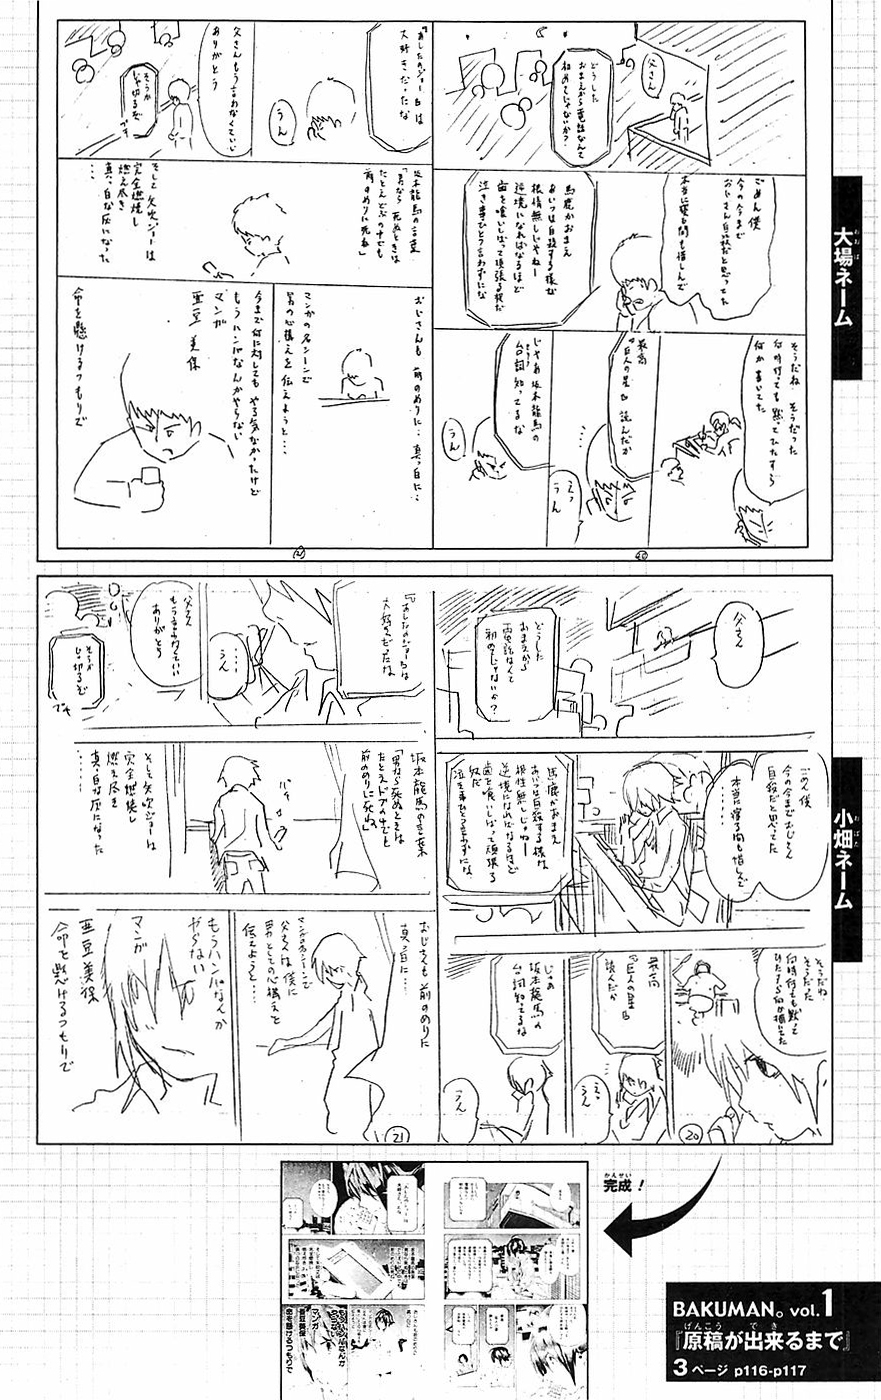 大場ネーム
おおば
父さん
どうした
おまえから電話なんて
初めてじゃないか?
ごめん僕
今の今まで
おじさん自殺だと思ってた
本当に寝る間も惜しんで
馬鹿かおまえ
あいつは自殺する様な
根性無しじゃねー
逆境になればなるほど
歯を喰いしばって頑張る奴だ
泣き事ひとつ言わずにな
そうだね そうだった
何時行っても黙ってひたすら
何か書いてた
最高
『巨人の星』読んだか
えっ
うん
じゃあ坂本龍馬の
台詞知ってるな
うん
20
『あしたのジョー』は
大好きだったな
うん
父さんもう言わなくていい
ありがとう
そうか
じゃ切るぞ
坂本龍馬の言葉
「男なら死ぬときは
たとえどぶの中でも
前のめりに死ね」
そして矢吹ジョーは
完全燃焼し
燃え尽き
真っ白な灰になった
…
おじさんも前のめりに…真っ白に…
マンガの名シーンで
男の心構えを伝えようと…
今まで何に対してもやる気なかったけど
もうハンパなんかやらない
マンガ
亜豆美保
命を懸けるつもりで
21
小畑ネーム
おばた
父さん
どうした
おまえから
電話なんて
初めてじゃないか?
ごめん僕
今の今までおじさん
自殺だと思ってた
本当に寝る間も惜しんで
……
馬鹿かおまえ
あいつは自殺する様な
根性無しじゃねー
逆境になればなるほど
歯を喰いしばって頑張る
奴だ
泣き事ひとつ言わずにな
そうだね
そうだった
何時行っても黙って
ひたすら何か描いてた
最高
『巨人の星』
読んだか
えっ
うん
じゃあ
坂本龍馬の
台詞知ってるな
うん
20
『あしたのジョー』は
大好きだったな
…
うん
父さん
もう言わなくていい
ありがとう
そうか
じゃ切るぞ
坂本龍馬の言葉
「男なら死ぬときは
たとえドブの中でも
前のめりに死ね」
そして矢吹ジョーは
完全燃焼し
燃え尽き
真っ白な灰になった
……
おじさんも前のめりに
真っ白に…
マンガの名シーンで
父さんは僕に
男としての心構えを
伝えようと…
もうハンパなんか
やらない
マンガ
亜豆美保
命を懸けるつもりで
21
かんせい
完成!
BAKUMAN。vol.1
げんこう でき
『原稿が出来るまで』
3ページ p116-p117